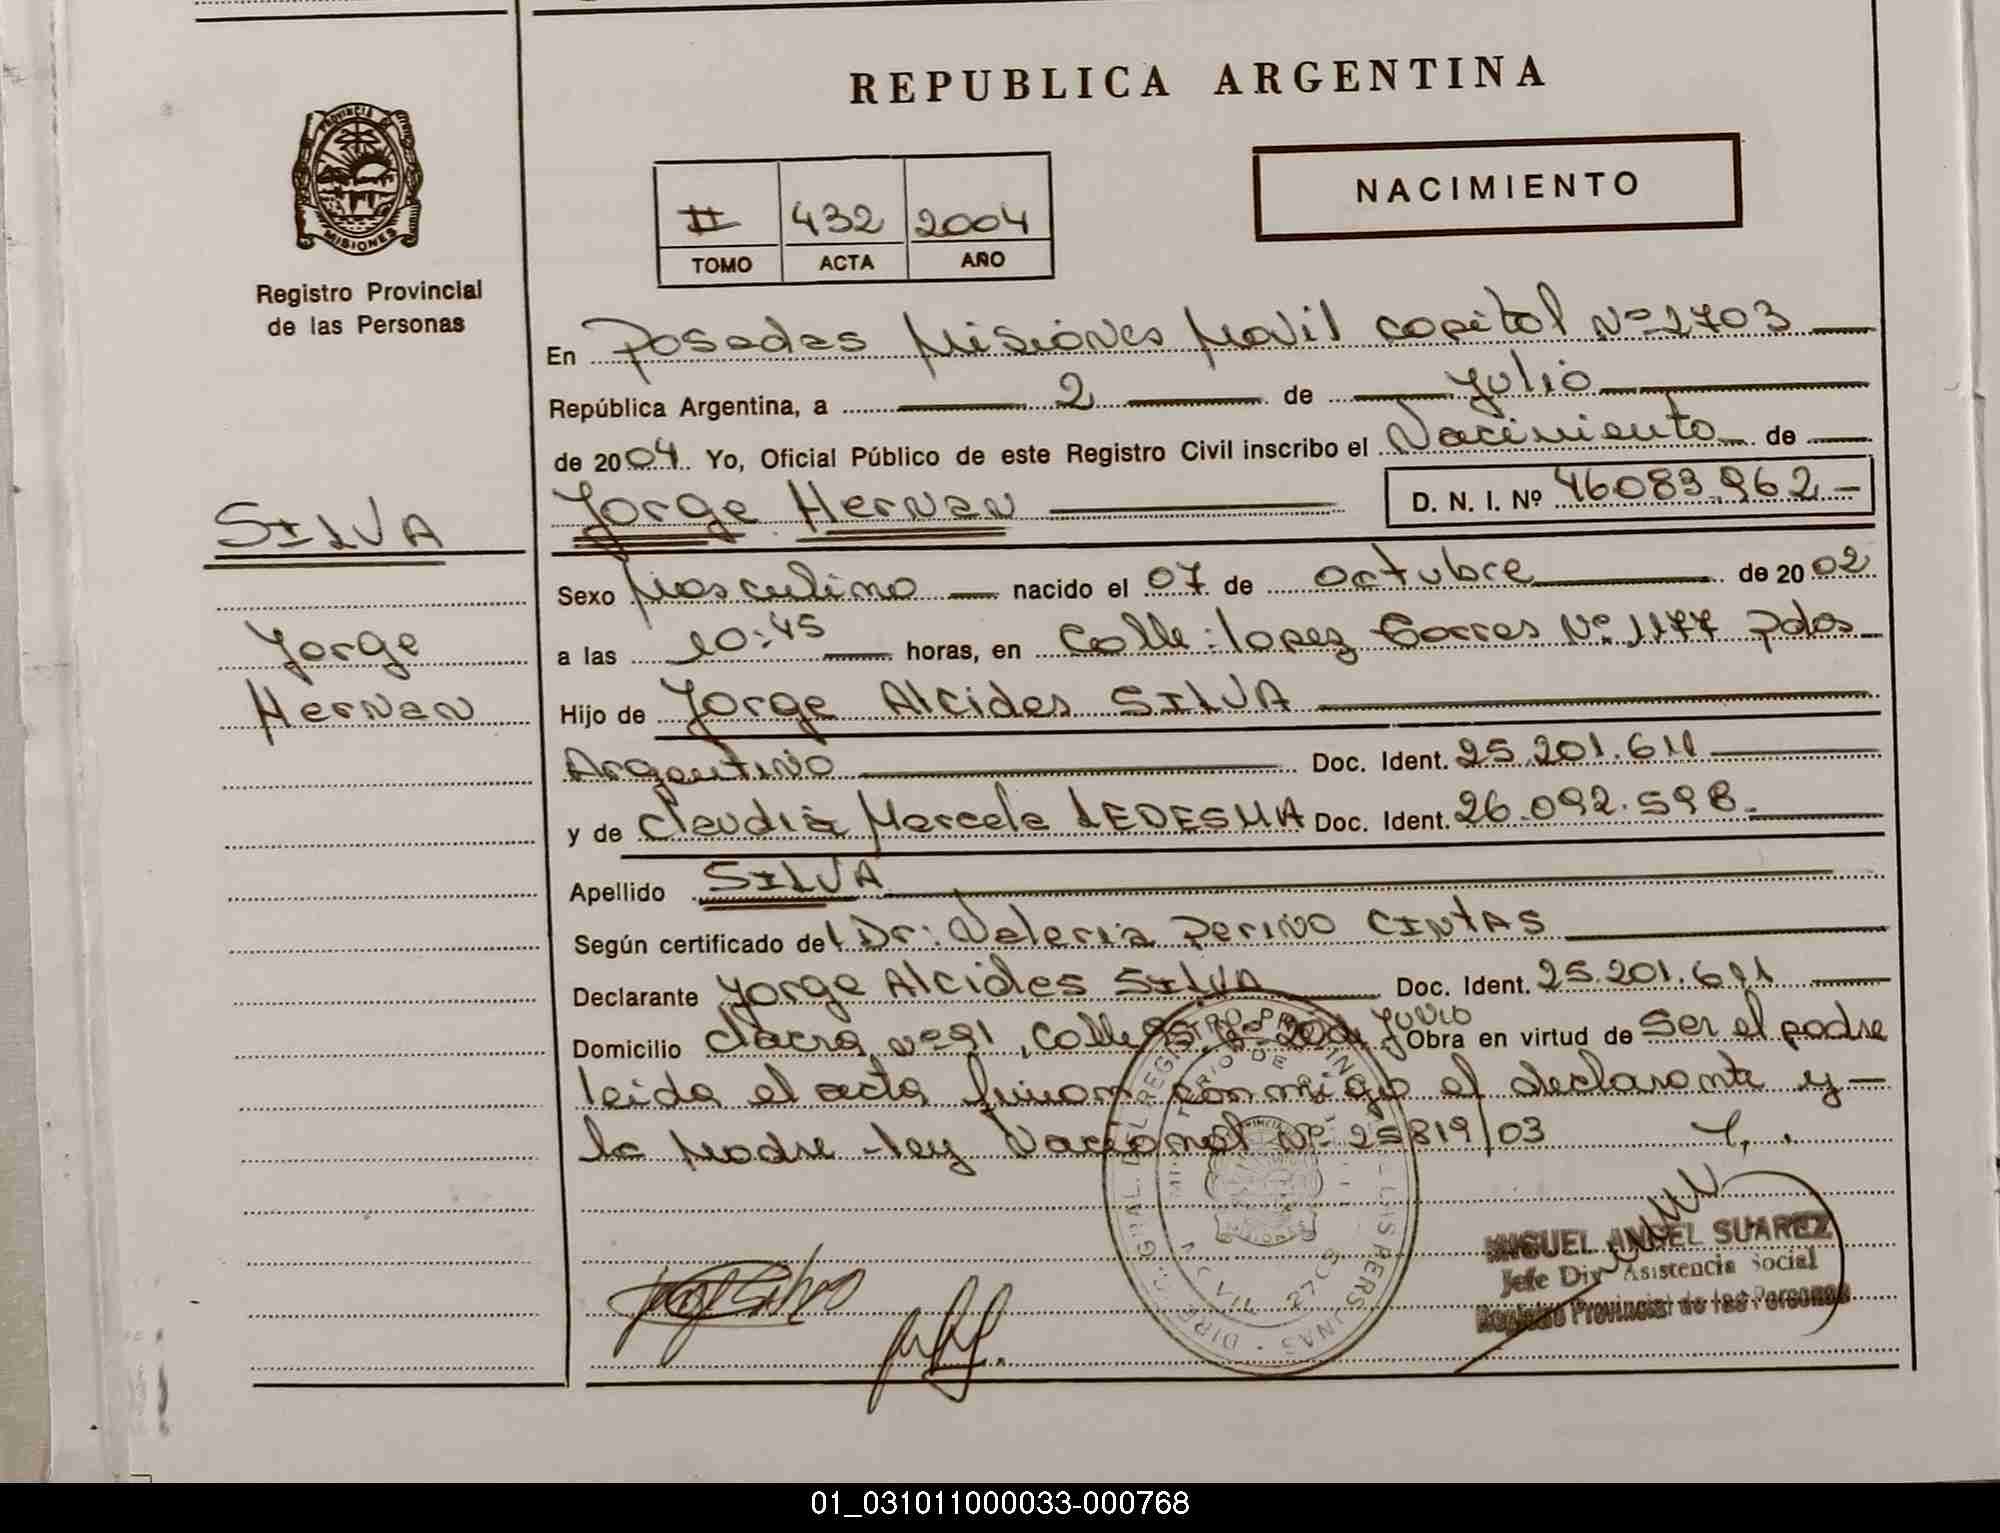 REPUBLICA ARGENTINA
PROVINCIA DE
MISIONES
Registro Provincial
de las Personas
II 432 2004
TOMO ACTA AÑO
NACIMIENTO
En Posadas Misiones Movil capital Nº 2703
República Argentina, a 2 de Julio
de 2004. Yo, Oficial Público de este Registro Civil inscribo el Nacimiento de
SILVA
Jorge Hernan D. N. I. Nº 46083.962
Sexo Masculino nacido el 07 de octubre de 2002
Jorge
a las 10:45 horas, en Calle: lopez torres Nº 1177 Pdas
Hernan
Hijo de Jorge Alcides SILVA
Argentino Doc. Ident. 25.201.611
y de Claudia Marcela LEDESMA Doc. Ident. 26.092.598.
Apellido SILVA
Según certificado del Dr: Valeria Perino CINTAS
Declarante Jorge Alcides SILVA Doc. Ident. 25.201.611
Domicilio Chacra nº 91, Calle Obra en virtud de Ser el padre
leida el acta firman conmigo el declarante y
la Madre ley Nacional Nº 25819/03
MIGUEL ANGEL SUAREZ
Jefe Div Asistencia Social
Registro Provincial de las Personas
01_031011000033-000768